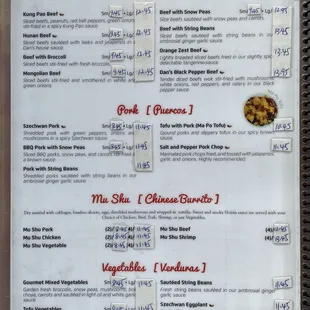 Kung Pao Beef Sm 7.45 Lg 12.45
Sliced beef, peanuts, red bell peppers, green onions
stir fried in a spicy Kung Pao sauce
Hunan Beef
Sliced beef sautéed with leeks and jalapeños in
Dan's house sauce
Beef with Broccoli
Sliced beef stir fried with broccoli in a brown sauce
Mongolian Beef
Sliced beef stir fried and smothered in white and
green onions
Beef with Snow Peas 12.45
Sliced beef sautéed with snow peas and carrots.
Beef with String Beans 13.45
Sliced beef sautéed with string beans in our
ambrosial ginger garlic sauce
Orange Zest Beef 13.45
Lightly breaded sliced beef fried in our slightly
spicy delectable tangerine sauce
Dan's Black Pepper Beef
Tender diced beef wok stir fried with mushrooms,
white onions, red peppers, and celery in a black
pepper sauce
Pork [ Puercos ]
Szechwan Pork 11.45
Shredded pork with green peppers, onions and
mushrooms in a spicy Szechwan sauce
BBQ Pork with Snow Peas 11.45
Sliced BBQ pork, snow peas, and carrots stir fried in
a brown sauce
Pork with String Beans 11.45
Shredded pork sautéed with string beans in our
ambrosial ginger garlic sauce
Tofu with Pork (Ma Po Tofu) 11.45
Ground pork and slippery tofus in our spicy brown
sauce.
Salt and Pepper Pork Chop 11.45
Marinated pork chops fried, and tossed with jalapeños,
garlic and onions. Highly recommended.
Mu Shu [ Chinese Burrito ]
Dry sauteed with cabbage, bamboo shoots, eggs, shredded mushrooms and wrapped in tortilla. Sweet and smoky Hoisin sauce are served with your
Choice of Chicken, Beef, Pork, Shrimp, or just Vegetables.
Mu Shu Pork (2) 8.45 (4) 11.45
Mu Shu Chicken (2) 8.45 (4) 11.45
Mu Shu Vegetable (2) 8.45 (4) 11.45
Mu Shu Beef (4) 12.45
Mu Shu Shrimp (4) 13.45
Vegetables [ Verduras ]
Gourmet Mixed Vegetables 11.45
Garden fresh broccoli, snow peas, mushrooms, bok
choy, carrots and sautéed in light oil and white garlic
sauce
Tofu Vegetables
Sautéed String Beans 11.45
Fresh string beans sautéed in our ambrosial ginger
garlic sauce
Szechwan Eggplant